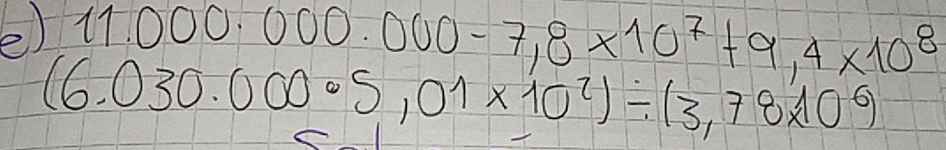 e) 11.000.000.000 - 7,8 × 10⁷ + 9,4 × 10⁸
(6.030.000 • 5,01 × 10²) ÷ (3,78 × 10⁶)